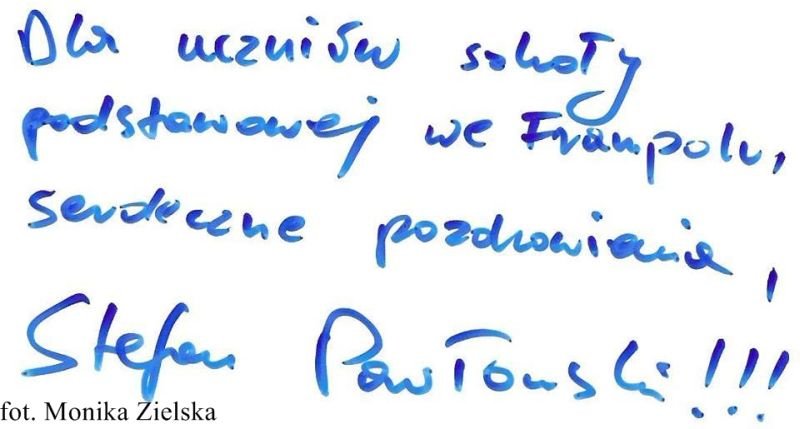 Dla uczniów szkoły
podstawowej we Frampolu,
serdeczne pozdrowienia,
Stefan Pawłowski!!!
fot. Monika Zielska